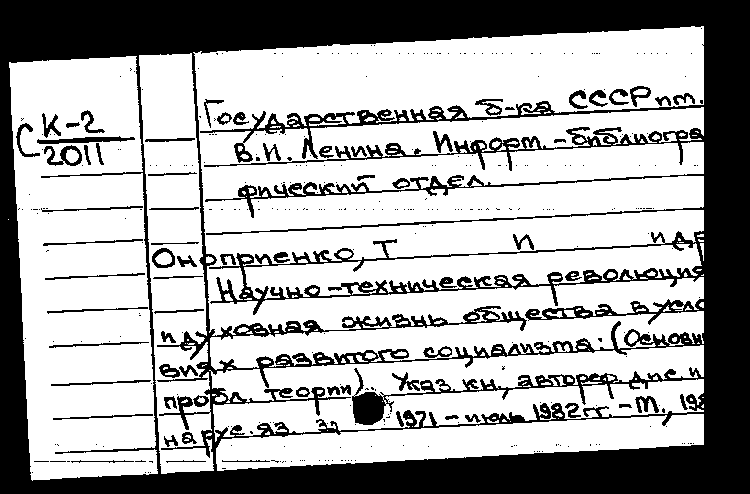 С К-2
2011
Государственная б-ка СССР им.
В.И. Ленина. Информ.-библиогра
фический отдел.
Оноприенко, Т И и др
Научно-техническая революция
и духовная жизнь общества в усло
виях развитого социализма: (Основн
пробл. теории) Указ. кн., автореф. дис. и
на рус. яз. за 1971 - июль 1982 гг. - М., 198